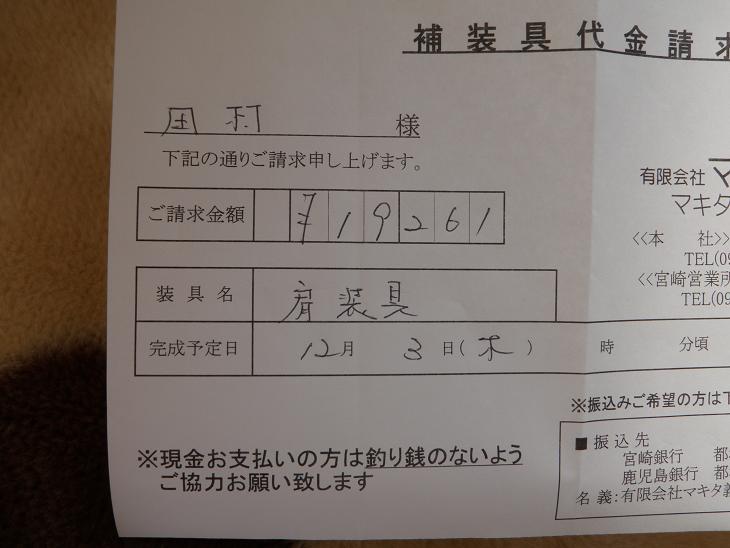 補装具代金請求
田村 様
下記の通りご請求申し上げます。
有限会社マ
マキタ
ご請求金額 ¥19261
<<本 社>>
TEL(09
<<宮崎営業所
TEL(09
装具名 肩装具
完成予定日 12月 3日(木) 時 分頃
※振込みご希望の方は下
■振込先
宮崎銀行 都
鹿児島銀行 都
名義:有限会社マキタ義
※現金お支払いの方は釣り銭のないよう
ご協力お願い致します